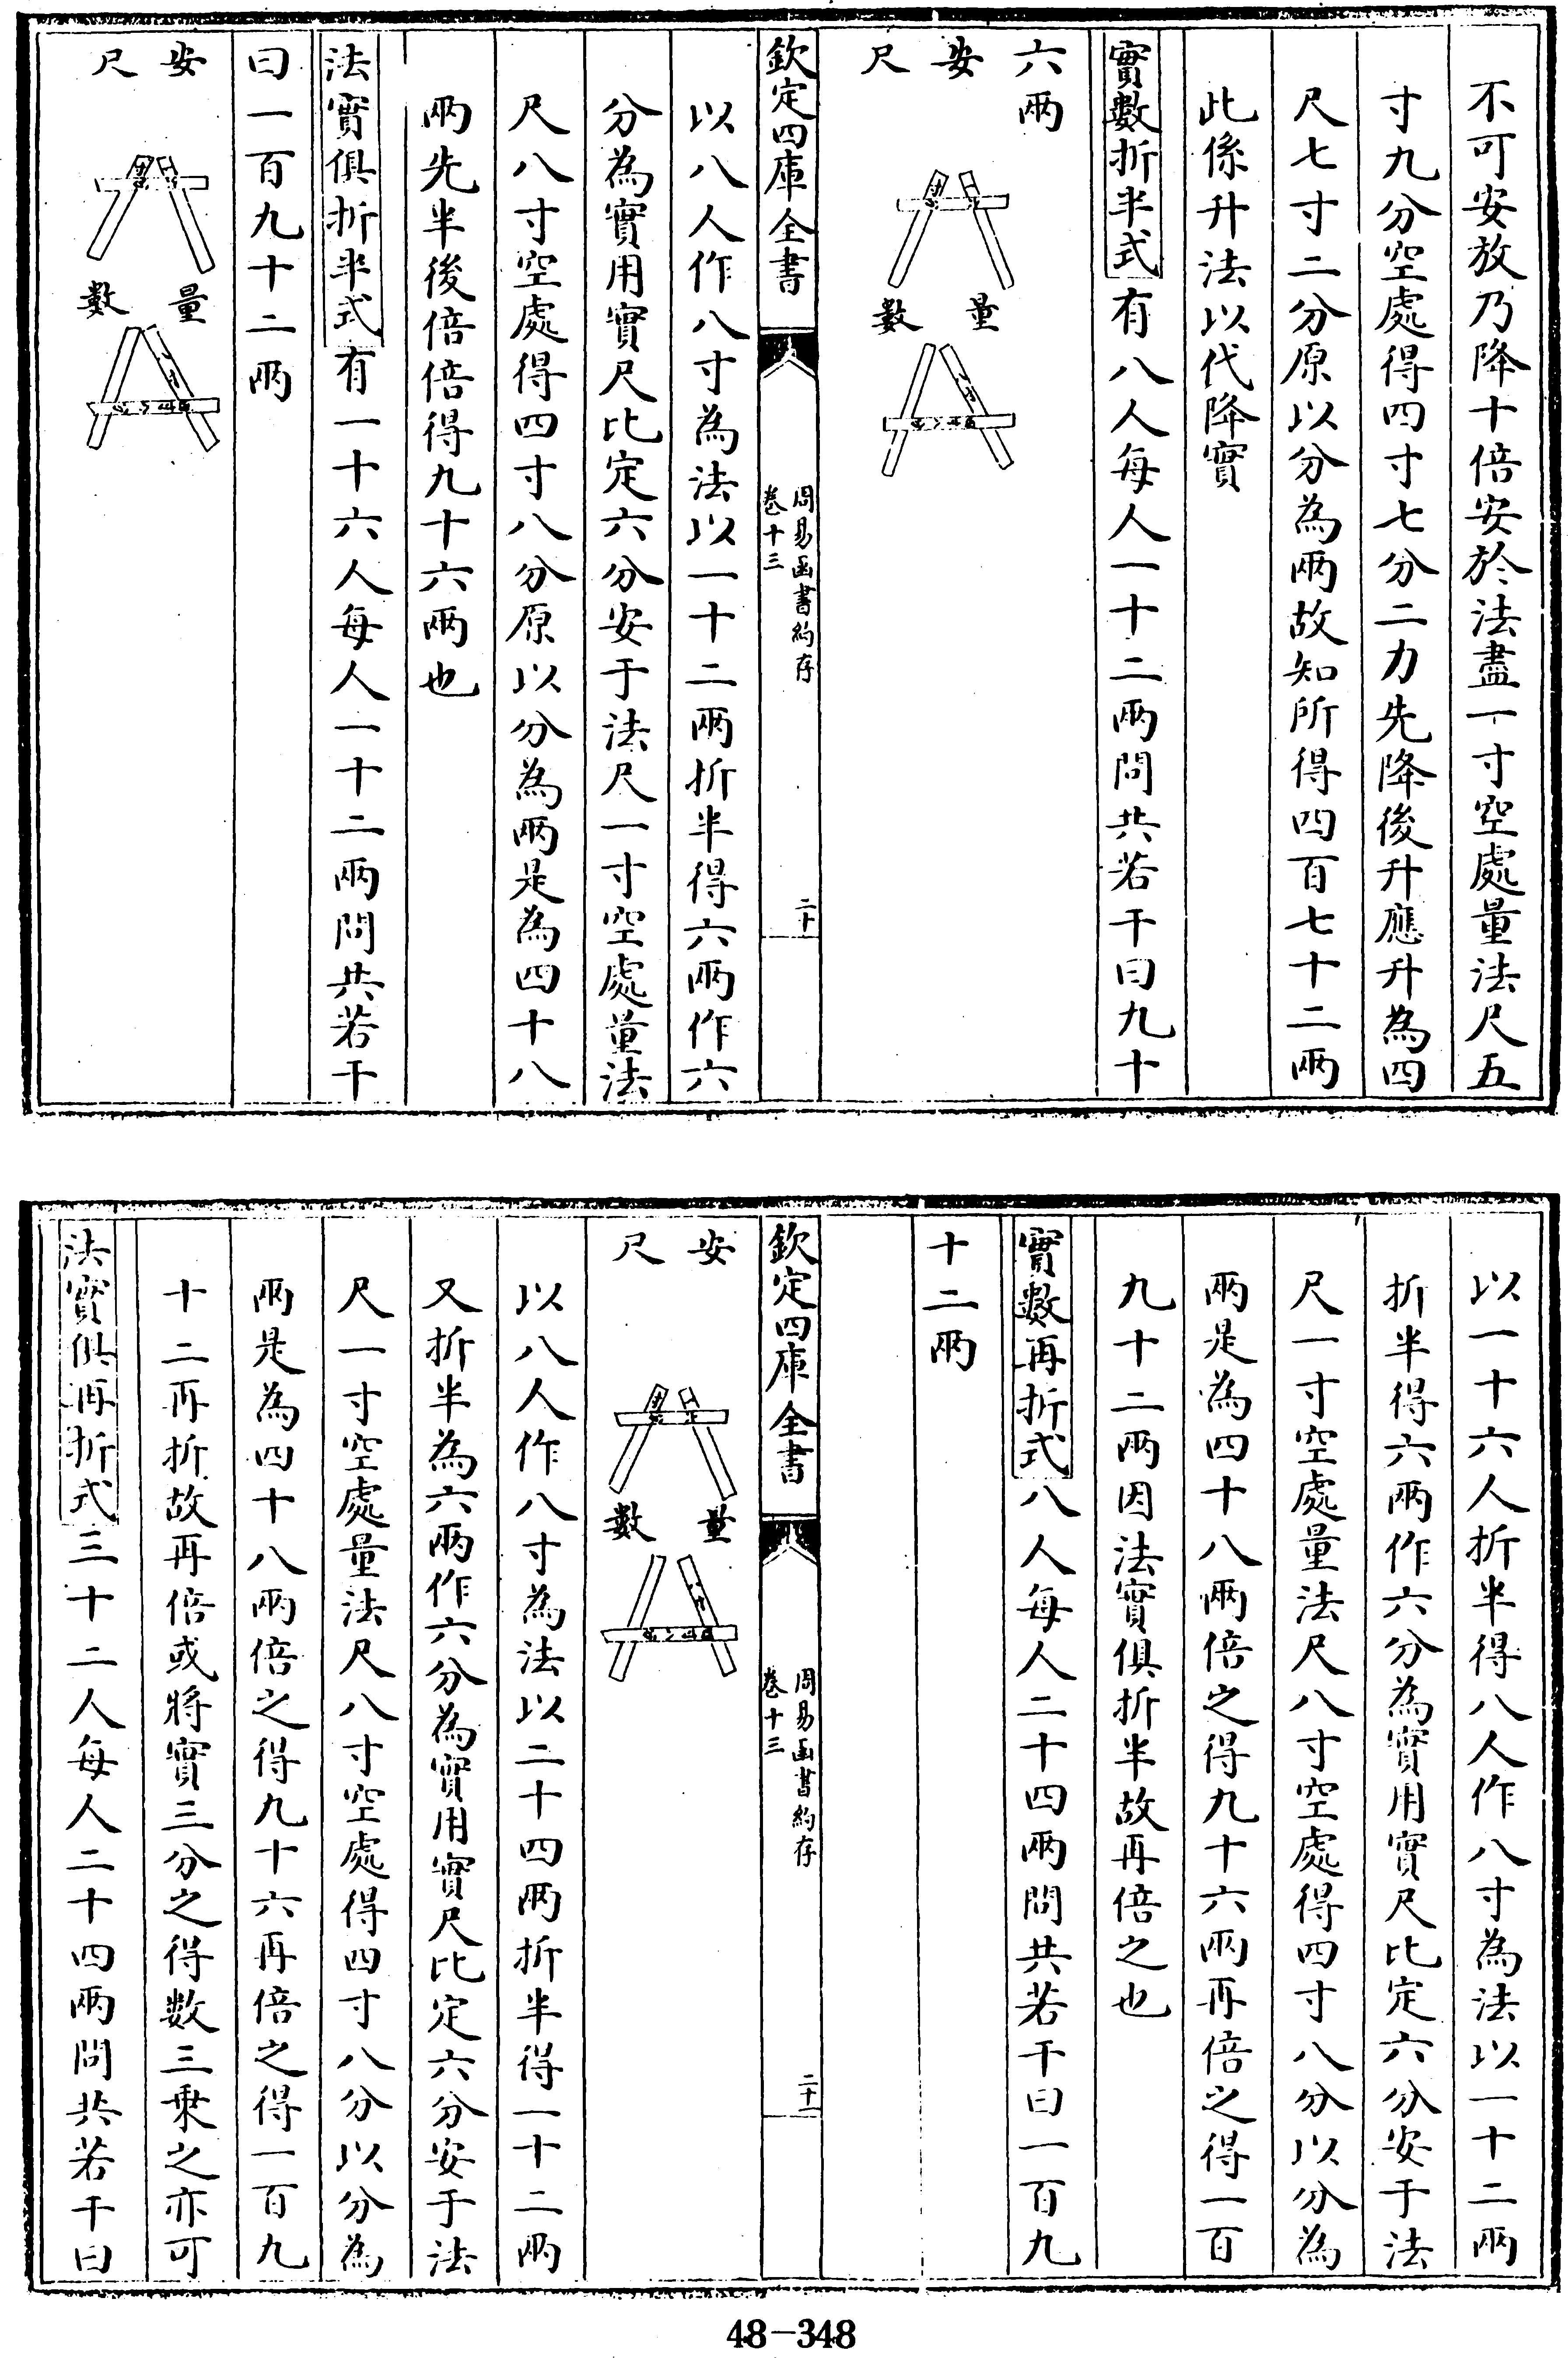 不可安放乃降十倍安於法盡一寸空處量法尺五
寸九分空處得四寸七分二力先降後升應升為四
尺七寸二分原以分為兩故知所得四百七十二兩
此係升法以代降實
實數折半式有八人每人一十二兩問共若干曰九十
六兩
安尺
量數
欽定四庫全書
周易函書約存
卷十三
二十
以八人作八寸為法以一十二兩折半得六兩作六
分為實用實尺比定六分安于法尺一寸空處量法
尺八寸空處得四寸八分原以分為兩是為四十八
兩先半後倍倍得九十六兩也
法實俱折半式有一十六人每人一十二兩問共若干
曰一百九十二兩
安尺
量數
以一十六人折半得八人作八寸為法以一十二兩
折半得六兩作六分為實用實尺比定六分安于法
尺一寸空處量法尺八寸空處得四寸八分以分為
兩是為四十八兩倍之得九十六兩再倍之得一百
九十二兩因法實俱折半故再倍之也
實數再折式八人每人二十四兩問共若干曰一百九
十二兩
欽定四庫全書
周易函書約存
卷十三
二十一
安尺
量數
以八人作八寸為法以二十四兩折半得一十二兩
又折半為六兩作六分為實用實尺比定六分安于法
尺一寸空處量法尺八寸空處得四寸八分以分為
兩是為四十八兩倍之得九十六再倍之得一百九
十二再折故再倍或將實三分之得數三乘之亦可
法實俱再折式三十二人每人二十四兩問共若干曰
48-348